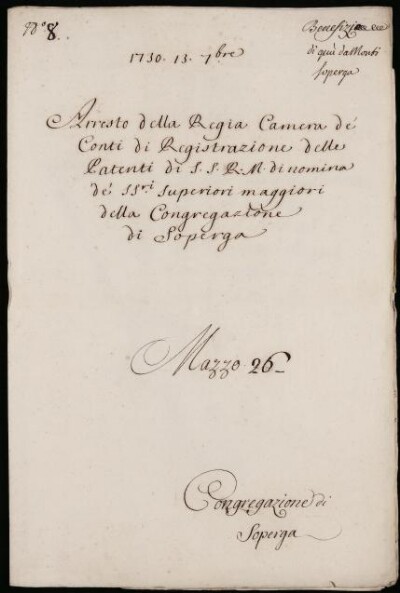 N.o 8.
Benefizi
di quà da Monti
Soperga
1730. 13. 7bre
Arresto della Regia Camera de'
Conti di Registrazione delle
Patenti di S. S. R. M. di nomina
de' SS.ri Superiori maggiori
della Congregazione
di Soperga
Mazzo 26
Congregazione di
Soperga